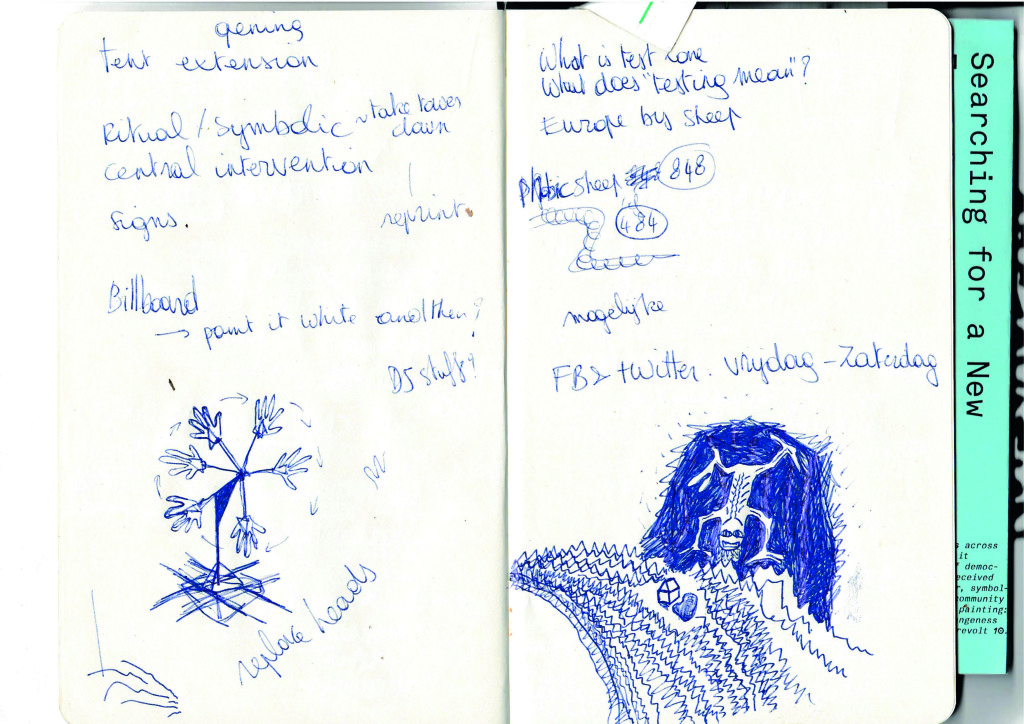 opening
tent extension
Ritual / Symbolic ~ take towers
down
central intervention
signs.
reprint.
Billboard
→ paint it white and then?
DJ stuff?
replace heads
What is test zone
What does "testing mean"?
Europe by sheep
sheep 848
484
mogelijke
FB & twitter. vrijdag – Zaterdag
Searching for a New
s across
it
democ-
eceived
r, symbol-
ommunity
painting:
ngeness
revolt 10.